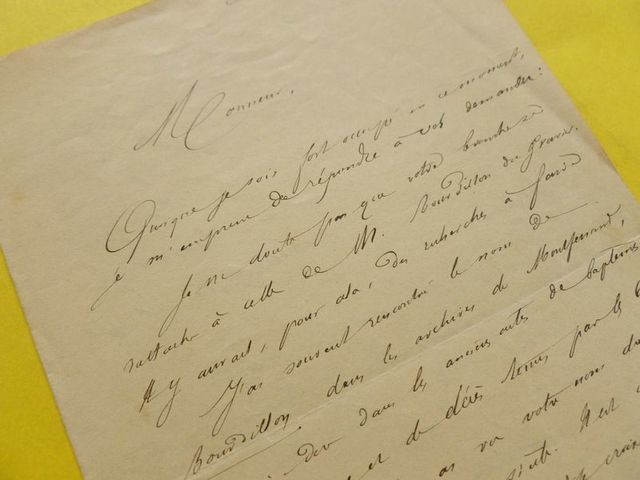 Monsieur,
Quoique je sois fort occupé en ce moment,
je m'empresse de répondre à vos demandes :
Je ne doute pas que votre branche se
rattache à celle de M. Bourdillon du Gravier.
Il y aurait, pour cela, des recherches à faire
J'ai souvent rencontré le nom de
Bourdillon dans les archives de Montferrand,
dans les anciens actes de baptêmes
et de décès tenus par le
vu votre nom
Il est